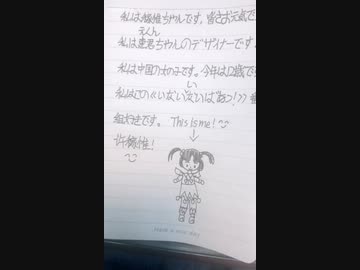 私は 維ちゃんです。皆さお元気で
えくん
私は連君ちゃんのデザイナーです。
私は中国の女の子です。今年は12歳で
い
私はこの《いないいないばあっ!》番
組好きです。 This is me!
许稀惟!
Have a nice day